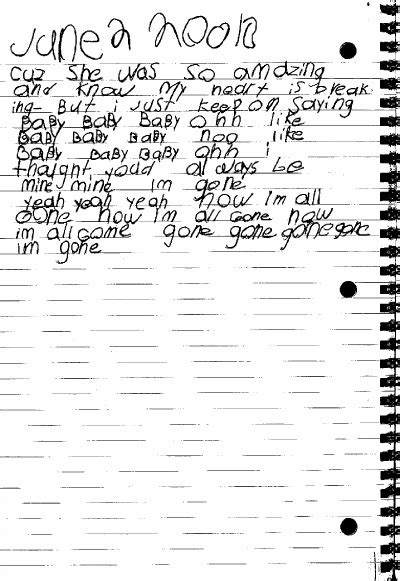 June 2 2001
cuz she was so amazing
and know my heart is break
ing- But i just keep on saying
BaBy BaBy BaBy ohh like
BaBy BaBy BaBy noo like
BaBy BaBy BaBy ohh i
thaight youd always be
mine mine im gone
yeah yeah yeah now im all
gone now im all gone now
im all gone gone gone gone gone
im gone